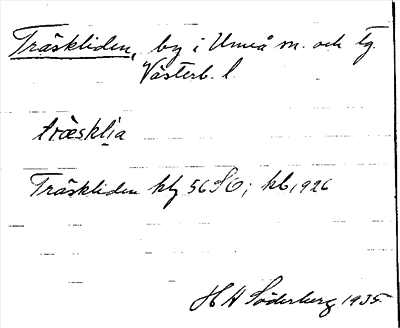 Träskliden, by i Umeå sn. och tg.
Västerb. l.
træsklia
Träskliden kbl 56 SO; kb. 1926
H A Söderberg 1935